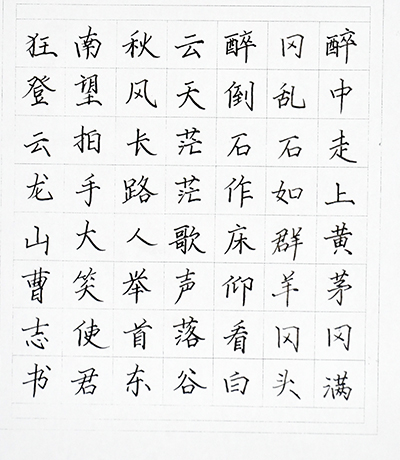 醉中走上黄茅冈满
冈乱石如群羊冈头
醉倒石作床仰看白
云天茫茫歌声落谷
秋风长路人举首东
南望拍手大笑使君
狂登云龙山曹志书